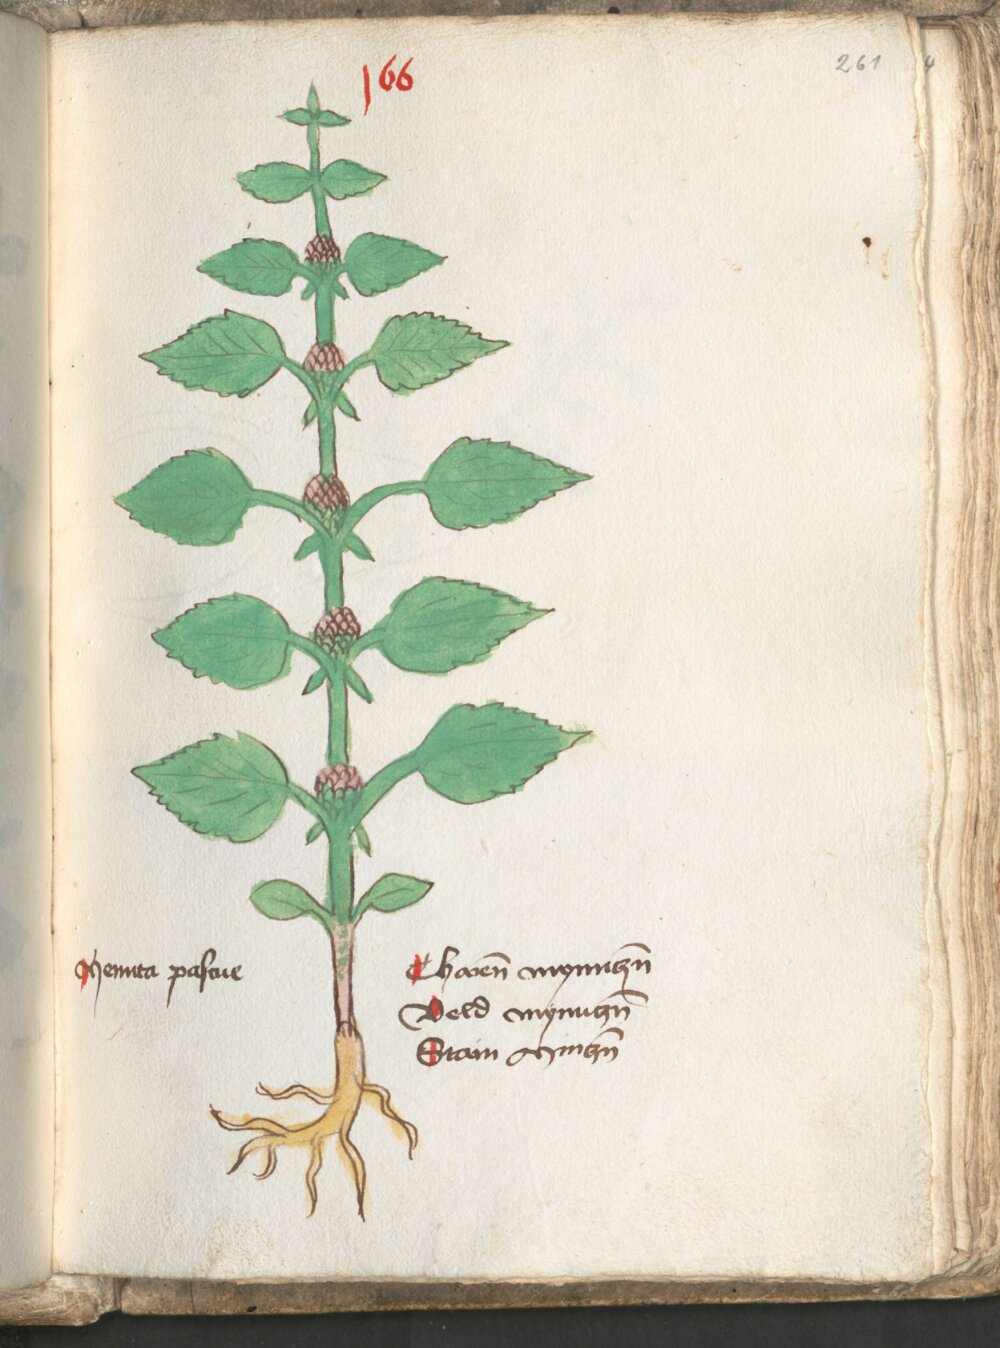 166
261
Mennta pascue
Thaven mynntzn̄
Veld mynntzn̄
Stain Mintzn̄